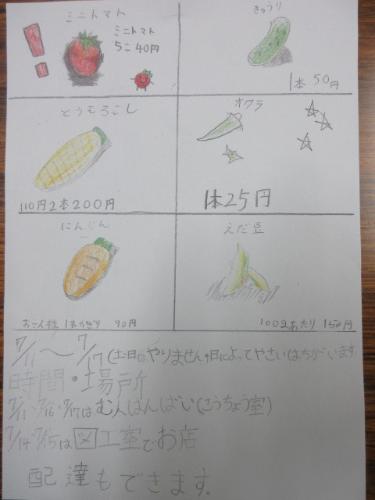 ミニトマト
ミニトマト
5こ 40円
きゅうり
1本 50円
とうもろこし
110円2本200円
オクラ
1本25円
にんじん
90円
えだ豆
100gあたり 150円
7/11〜7/17(土日はやりません。日によってやさいはちがいます
時間・場所
7/11・7/16・7/17はむ人はんばい(こうちょう室)
7/14・7/15は図工室でお店
配達もできます